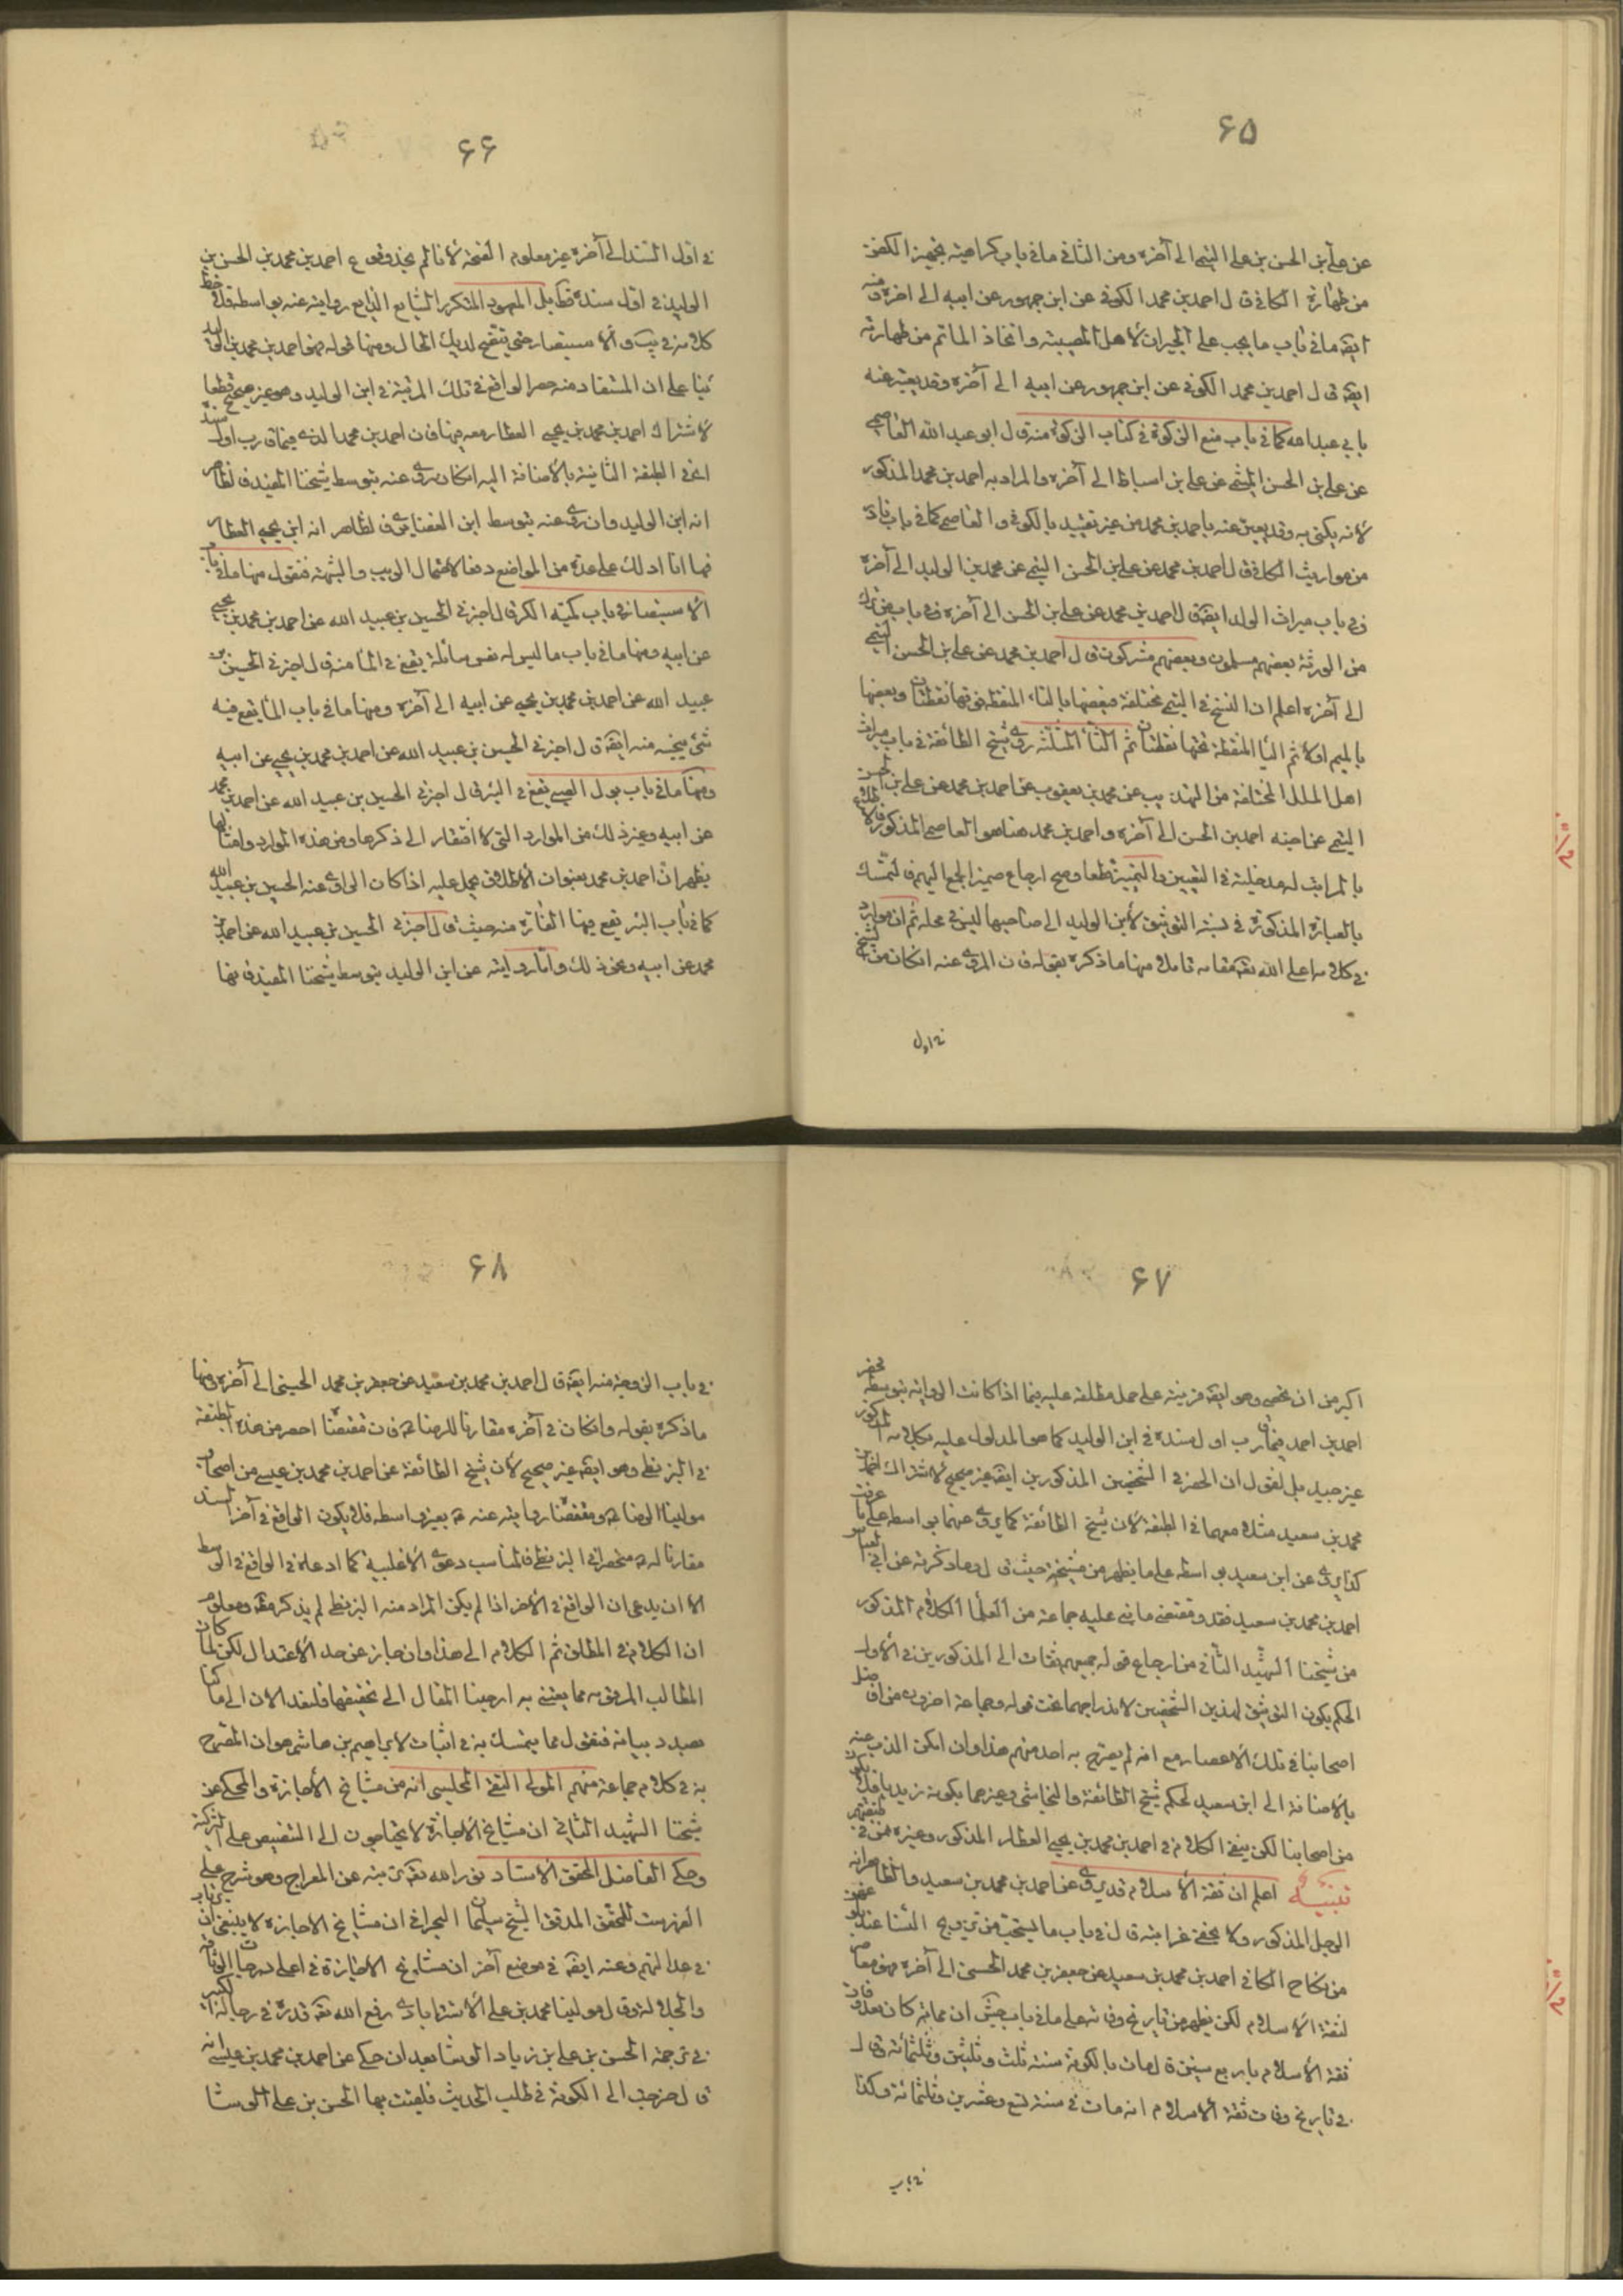 ۶۵
عن علي بن الحسن بن علي التيمي الى آخره ومن الثاني ما في باب كراهية تجمير الكفن
من طهارة الكافي قال احمد بن محمد الكوفي عن ابن جمهور عن ابيه الى اخره ومنه
ايضه ما في باب ما يجب على الجيران لاهل المصيبة واتخاذ الماتم من طهارته
ايضه قال احمد بن محمد الكوفي عن ابن جمهور عن ابيه الى آخره وقد يعبر عنه
بابي عبدالله كما في باب منع الزكوة في كتاب الزكوة منه قال ابو عبد الله العاصمي
عن علي بن الحسن الميثمي عن علي بن اسباط الى آخره والمراد به احمد بن محمد المذكور
لانه يكنى به وقد يعبر عنه باحمد بن محمد من غير تقييد بالكوفي والعاصمي كما في باب
من مواريث الكافي قال احمد بن محمد عن علي بن الحسن التيمي عن محمد بن الوليد الى آخره
وفي باب ميراث الولد ايضه قال احمد بن محمد عن علي بن الحسن الى آخره وفي باب من ترك
من الورثة بعضهم مسلمون وبعضهم مشركون قال احمد بن محمد عن علي بن الحسن التيمي
الى آخره اعلم ان النسخ في التيمي مختلفة فبعضها بالتاء المنقطة فوقها نقطتان وبعضها
بالميم اولا ثم الياء المنقطة تحتها نقطتان ثم الثاء المثلثة روى شيخ الطائفة في باب ميراث
اهل الملل المختلفة من التهذيب عن محمد بن يعقوب عن احمد بن محمد عن علي بن الحسن
التيمي عن اخيه احمد بن الحسن الى آخره واحمد بن محمد هنا هو العاصمي المذكور
بالمراتب له مدخلية في التعيين والتميز قطعا وصح ارجاع ضمير الجمع اليهم فالتمسك
بالعبارة المذكورة في نسبة التوثيق لابن الوليد الى صاحبها ليس في محله ثم ان موارد
في كلامه اعلى الله تعه مقامه تامل منها ما ذكره بقوله فان المروي عنه ان كان من الشيخ
في اول
۶۶
في اول السند الى آخره غير معلوم الصحة لانا لم نجد وقوع احمد بن محمد بن الحسن بن
الوليد في اول سنده قط بل المعهود المتكرر الشايع الذايع روايته عنه بواسطة فلاحظ
كلامه في يب والاستبصار حتى يتضح لديك الحال ومنها قوله فهو احمد بن محمد بن الوليد
بناء على ان المستفاد منه حصر الواقع في تلك المرتبة في ابن الوليد وهو غير صحيح قطعا
لاشتراك احمد بن محمد بن يحيى العطار معه فيها فان احمد بن محمد الذي فيما قرب اول سنده
اعني الطبقة الثانية بالاضافة اليه ان كان روى عنه بتوسط شيخنا المفيد فالظاهر
انه ابن الوليد وان روى عنه بتوسط ابن الغضايري فالظاهر انه ابن يحيى العطار
فها انا ادلك على عدة من المواضع دفعا لاحتمال الريب والشبهة فنقول منها ما في باب
الاستبصار في باب كمية الكر قال اخبرني الحسين بن عبيد الله عن احمد بن محمد بن يحيى
عن ابيه ومنها ما في باب ما ليس له نفس سائلة يقع في الماء منه قال اخبرني الحسين بن
عبيد الله عن احمد بن محمد بن يحيى عن ابيه الى آخره ومنها ما في باب الماء يقع فيه
شئ ينجسه منه ايضه قال اخبرني الحسين بن عبيد الله عن احمد بن محمد بن يحيى عن ابيه
ومنها ما في باب بول الصبي يقع في البئر قال اخبرني الحسين بن عبيد الله عن احمد بن محمد
عن ابيه وغير ذلك من الموارد التي لا افتقار الى ذكرها ومن هذه الموارد وامثالها
يظهر ان احمد بن محمد بعنوان الاطلاق يحمل عليه اذا كان الراوي عنه الحسين بن عبيد الله
كما في باب البئر يقع فيها الفارة منه حيث قال اخبرني الحسين بن عبيد الله عن احمد بن
محمد عن ابيه ونحو ذلك واما روايته عن ابن الوليد بتوسط شيخنا المفيد فانها
۶۷
اكبر من ان تحصى وهو ايضه قرينة على حمل مطلقه عليه فيما اذا كانت الرواية بتوسطه
احمد بن احمد فيما قرب اول سنده في ابن الوليد كما هو المدلول عليه بكلامه المذكور
غير جيد بل نقول ان الحصر في الشخصين المذكورين ايضه غير صحيح لاشتراك احمد بن
محمد بن سعيد مثلا معهما في الطبقة لان شيخ الطائفة كما يروي عنهما بواسطة على ما عرفت
كذا يروي عن ابن سعيد بواسطة على ما يظهر من مشيخته حيث قال وما ذكرته عن ابي العباس
احمد بن محمد بن سعيد فقد ومقتضى ما بنى عليه جماعة من العلماء الكلام المذكور
من شيخنا الشهيد الثاني من ارجاع قوله جميعهم ثقات الى المذكورين في الاول
الحكم بكون التوثيق لهذين الشخصين لاندراجهما تحت قوله وجماعة اخرى من افاضل
اصحابنا في تلك الاعصار مع انه لم يصرح به احد منهم هذا وان امكن الذب عنه
بالاضافة الى ابن سعيد لحكم شيخ الطائفة والنجاشي وغيرهما بكونه زيديا فلا يكون
من اصحابنا لكن يبقى الكلام في احمد بن محمد بن يحيى العطار المذكور وغيره ممن في طبقتهم
تنبيه اعلم ان ثقة الاسلام قد يروي عن احمد بن محمد بن سعيد والظاهر انه
الرجل المذكور ولا يخفى غرابته قال في باب ما يستحب من تزويج النساء عند
من نكاح الكافي احمد بن محمد بن سعيد عن جعفر بن محمد الحسني الى آخره فهو معاصر
لثقة الاسلام لكن يظهر من تاريخ وفاته على ما في باب جش ان مماته كان بعد وفات
ثقة الاسلام باربع سنين قال مات بالكوفة سنة ثلث وثلثين وثلثمائة قال
في تاريخ وفات ثقة الاسلام انه مات في سنة تسع وعشرين وثلثمائة وكذا
في باب
۶۸
في باب الزوجة منه ايضه قال احمد بن محمد بن سعيد عن جعفر بن محمد الحسني الى آخره ومنها
ما ذكره بقوله وان كان في آخره مقارنا للرضا ع فان مقتضاه الحصر من هذه الطبقة
في البزنطي وهو ايضه غير صحيح لان شيخ الطائفة عن احمد بن محمد بن عيسى من اصحاب
مولينا الرضا ع ومقتضاه روايته عنه ع بغير واسطة فلا يكون الواقع في آخر السند
مقارنا له ع منحصرا في البزنطي فالمناسب دعوى الاغلبية كما ادعاه في الواقع في الوسط
الا ان يدعى ان الواقع في الآخر اذا لم يكن المراد منه البزنطي لم يذكر مطلقه ومعلوم
ان الكلام في المطلق ثم الكلام الى هذا وان جاز عن حد الاعتدال لكن لما كان
المطالب المرقومه مما يعتنى به ارخينا المقال الى تحقيقها فلنعد الان الى ما كنا
بصدد بيانه فنقول مما يتمسك به في اثبات لابراهيم بن هاشم هو ان المصرح
به في كلام جماعة منهم المولى التقي المجلسي انه من مشايخ الاجازة والمحكي عن
شيخنا الشهيد الثاني ان مشايخ الاجازة لا يحتاجون الى التنصيص على التزكية
وحكى الفاضل المحقق الاستاد نور الله تعه تربته عن المعراج وهو شرح على
الفهرست للمحقق المدقق الشيخ سليمان البحراني ان مشايخ الاجازة لا ينبغي ان يرتاب
في عدالتهم وعنه ايضه في موضع آخر ان مشايخ الاجازة في اعلى درجات الوثاقة
والجلالة وقال مولينا محمد بن علي الاسترابادي رفع الله تعه قدره في رجاله الكبير
في ترجمة الحسن بن علي بن زياد الوشا بعد ان حكى عن احمد بن محمد بن عيسى انه
قال خرجت الى الكوفة في طلب الحديث فلقيت بها الحسن بن علي الوشا